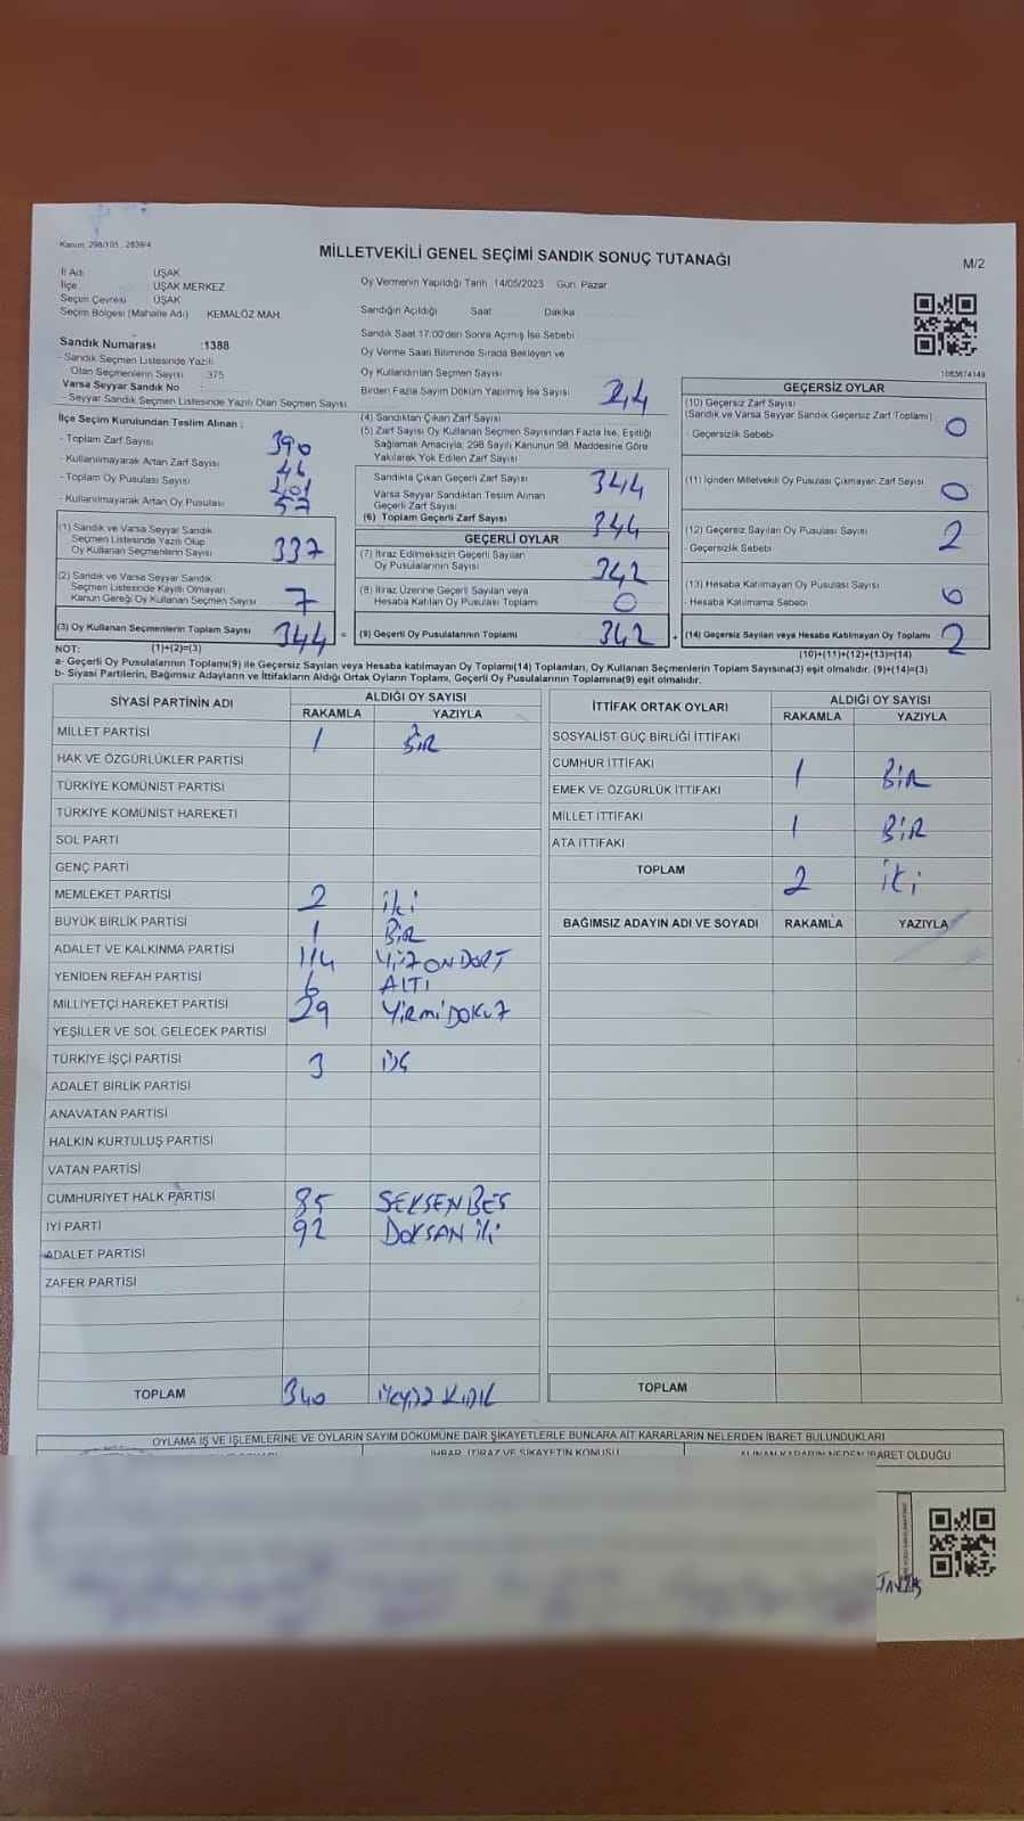 Kanun: 298/105 , 2839/4
MİLLETVEKİLİ GENEL SEÇİMİ SANDIK SONUÇ TUTANAĞI
M/2
İl Adı : UŞAK
İlçe : UŞAK MERKEZ
Seçim Çevresi : UŞAK
Seçim Bölgesi (Mahalle Adı) KEMALÖZ MAH.
Oy Vermenin Yapıldığı Tarih 14/05/2023 Gün: Pazar
Sandığın Açıldığı Saat Dakika
Sandık Saat 17:00'den Sonra Açılmış İse Sebebi
Oy Verme Saati Bitiminde Sırada Bekleyen ve
Oy Kullandırılan Seçmen Sayısı
Birden Fazla Sayım Döküm Yapılmış İse Sayısı
1083674149
Sandık Numarası :1388
- Sandık Seçmen Listesinde Yazılı
Olan Seçmenlerin Sayısı : 375
Varsa Seyyar Sandık No :
- Seyyar Sandık Seçmen Listesinde Yazılı Olan Seçmen Sayısı
İlçe Seçim Kurulundan Teslim Alınan :
- Toplam Zarf Sayısı 390
- Kullanılmayarak Artan Zarf Sayısı 46
- Toplam Oy Pusulası Sayısı 401
- Kullanılmayarak Artan Oy Pusulası 57
(1) Sandık ve Varsa Seyyar Sandık
Seçmen Listesinde Yazılı Olup
Oy Kullanan Seçmenlerin Sayısı 337
(2) Sandık ve Varsa Seyyar Sandık
Seçmen Listesinde Kayıtlı Olmayan
Kanun Gereği Oy Kullanan Seçmen Sayısı 7
(3) Oy Kullanan Seçmenlerin Toplam Sayısı 344 =
(1)+(2)=(3)
(4) Sandıktan Çıkan Zarf Sayısı
(5) Zarf Sayısı Oy Kullanan Seçmen Sayısından Fazla İse, Eşitliği
Sağlamak Amacıyla, 298 Sayılı Kanunun 98. Maddesine Göre
Yakılarak Yok Edilen Zarf Sayısı
Sandıkta Çıkan Geçerli Zarf Sayısı 344
Varsa Seyyar Sandıktan Teslim Alınan
Geçerli Zarf Sayısı
(6) Toplam Geçerli Zarf Sayısı 344
GEÇERLİ OYLAR
(7) İtiraz Edilmeksizin Geçerli Sayılan
Oy Pusulalarının Sayısı 342
(8) İtiraz Üzerine Geçerli Sayılan veya
Hesaba Katılan Oy Pusulası Toplamı 0
(9) Geçerli Oy Pusulalarının Toplamı 342 +
GEÇERSİZ OYLAR
(10) Geçersiz Zarf Sayısı
(Sandık ve Varsa Seyyar Sandık Geçersiz Zarf Toplamı) 0
- Geçersizlik Sebebi
(11) İçinden Milletvekili Oy Pusulası Çıkmayan Zarf Sayısı 0
(12) Geçersiz Sayılan Oy Pusulası Sayısı 2
- Geçersizlik Sebebi
(13) Hesaba Katılmayan Oy Pusulası Sayısı 0
- Hesaba Katılmama Sebebi
(14) Geçersiz Sayılan veya Hesaba Katılmayan Oy Toplamı 2
(10)+(11)+(12)+(13)=(14)
NOT:
a- Geçerli Oy Pusulalarının Toplamı(9) ile Geçersiz Sayılan veya Hesaba katılmayan Oy Toplamı(14) Toplamları, Oy Kullanan Seçmenlerin Toplam Sayısına(3) eşit olmalıdır. (9)+(14)=(3)
b- Siyasi Partilerin, Bağımsız Adayların ve İttifakların Aldığı Ortak Oyların Toplamı, Geçerli Oy Pusulalarının Toplamına(9) eşit olmalıdır.
SİYASİ PARTİNİN ADI ALDIĞI OY SAYISI
RAKAMLA YAZIYLA
MİLLET PARTİSİ 1 BİR
HAK VE ÖZGÜRLÜKLER PARTİSİ
TÜRKİYE KOMÜNİST PARTİSİ
TÜRKİYE KOMÜNİST HAREKETİ
SOL PARTİ
GENÇ PARTİ
MEMLEKET PARTİSİ 2 iki
BÜYÜK BİRLİK PARTİSİ 1 BİR
ADALET VE KALKINMA PARTİSİ 114 YÜZ ONDÖRT
YENİDEN REFAH PARTİSİ 6 ALTI
MİLLİYETÇİ HAREKET PARTİSİ 29 YİRMİ DOKUZ
YEŞİLLER VE SOL GELECEK PARTİSİ
TÜRKİYE İŞÇİ PARTİSİ 3 ÜÇ
ADALET BİRLİK PARTİSİ
ANAVATAN PARTİSİ
HALKIN KURTULUŞ PARTİSİ
VATAN PARTİSİ
CUMHURİYET HALK PARTİSİ 85 SEKSEN BEŞ
İYİ PARTİ 92 DOKSAN İKİ
ADALET PARTİSİ
ZAFER PARTİSİ
TOPLAM 340
İTTİFAK ORTAK OYLARI ALDIĞI OY SAYISI
RAKAMLA YAZIYLA
SOSYALİST GÜÇ BİRLİĞİ İTTİFAKI
CUMHUR İTTİFAKI 1 BİR
EMEK VE ÖZGÜRLÜK İTTİFAKI
MİLLET İTTİFAKI 1 BİR
ATA İTTİFAKI
TOPLAM 2 iki
BAĞIMSIZ ADAYIN ADI VE SOYADI RAKAMLA YAZIYLA
TOPLAM
OYLAMA İŞ VE İŞLEMLERİNE VE OYLARIN SAYIM DÖKÜMÜNE DAİR ŞİKAYETLERLE BUNLARA AİT KARARLARIN NELERDEN İBARET BULUNDUKLARI
İHBAR, İTİRAZ VE ŞİKAYETİN KONUSU
ALINAN KARARIN NEDEN İBARET OLDUĞU